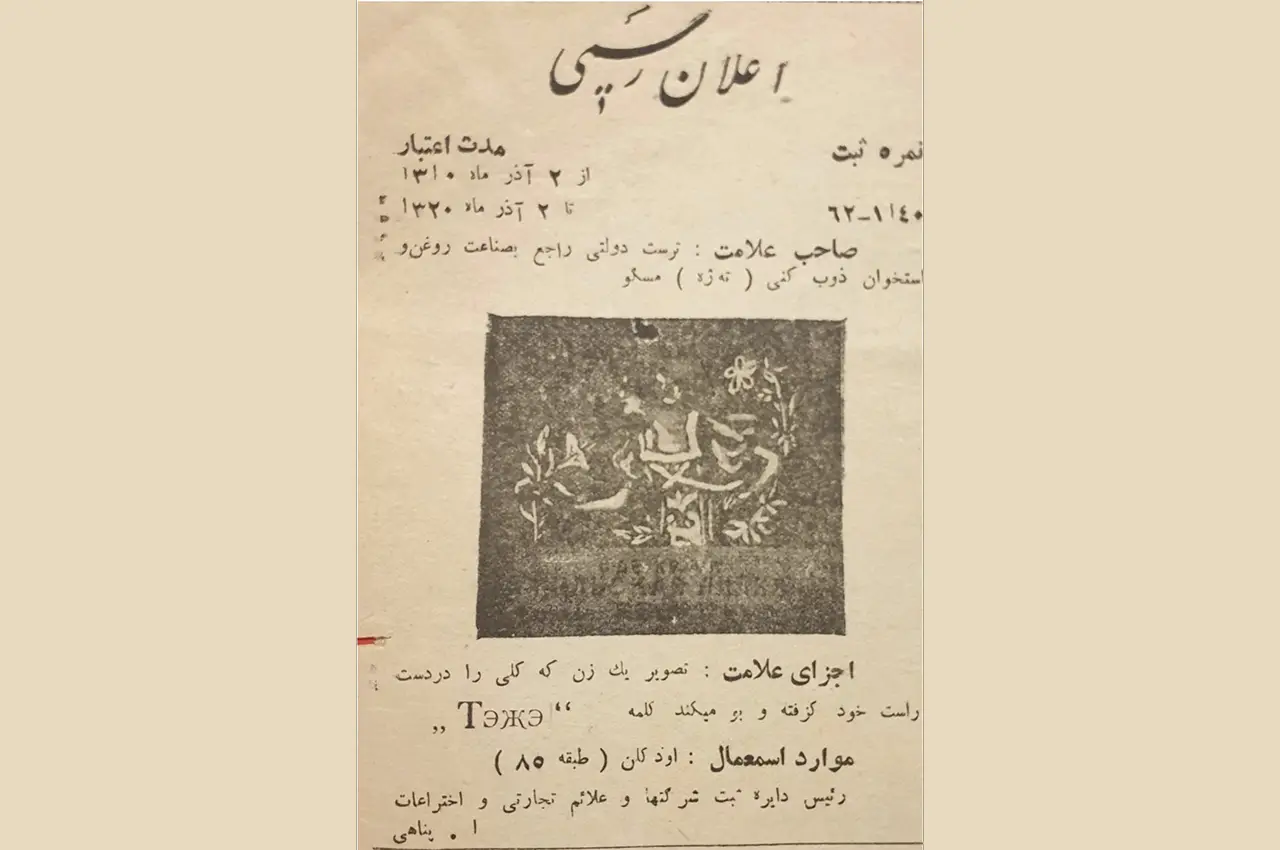 اعلان رسمی
نمره ثبت
مدت اعتبار
از ۲ آذر ماه ۱۳۱۰
۱۱۴۰-۶۲
تا ۲ آذر ماه ۱۳۲۰
صاحب علامت : ترست دولتی راجع بصناعت روغن و
استخوان ذوب کنی ( ته ژه ) مسگو
اجزای علامت : تصویر یك زن که کلی را دردست
راست خود گرفته و بو میکند کلمه “Тэжэ„
موارد اسمعمال : اودکلن ( طبقه ۸۵ )
رئیس دایره ثبت شرکتها و علائم تجارتی و اختراعات
ا . پناهی